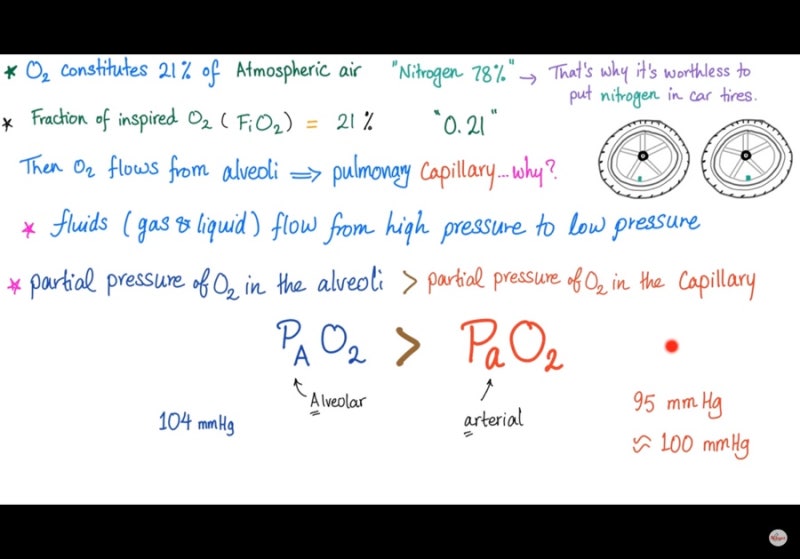 * O₂ constitutes 21% of Atmospheric air "Nitrogen 78%" → That's why it's worthless to
put nitrogen in car tires.
* Fraction of inspired O₂ (FiO₂) = 21% "0.21"
Then O₂ flows from alveoli ⇒ pulmonary Capillary...why?
* fluids (gas & liquid) flow from high pressure to low pressure
* partial pressure of O₂ in the alveoli > partial pressure of O₂ in the Capillary
PAO₂ > PaO₂
Alveolar arterial
104 mmHg
95 mmHg
≈ 100 mmHg